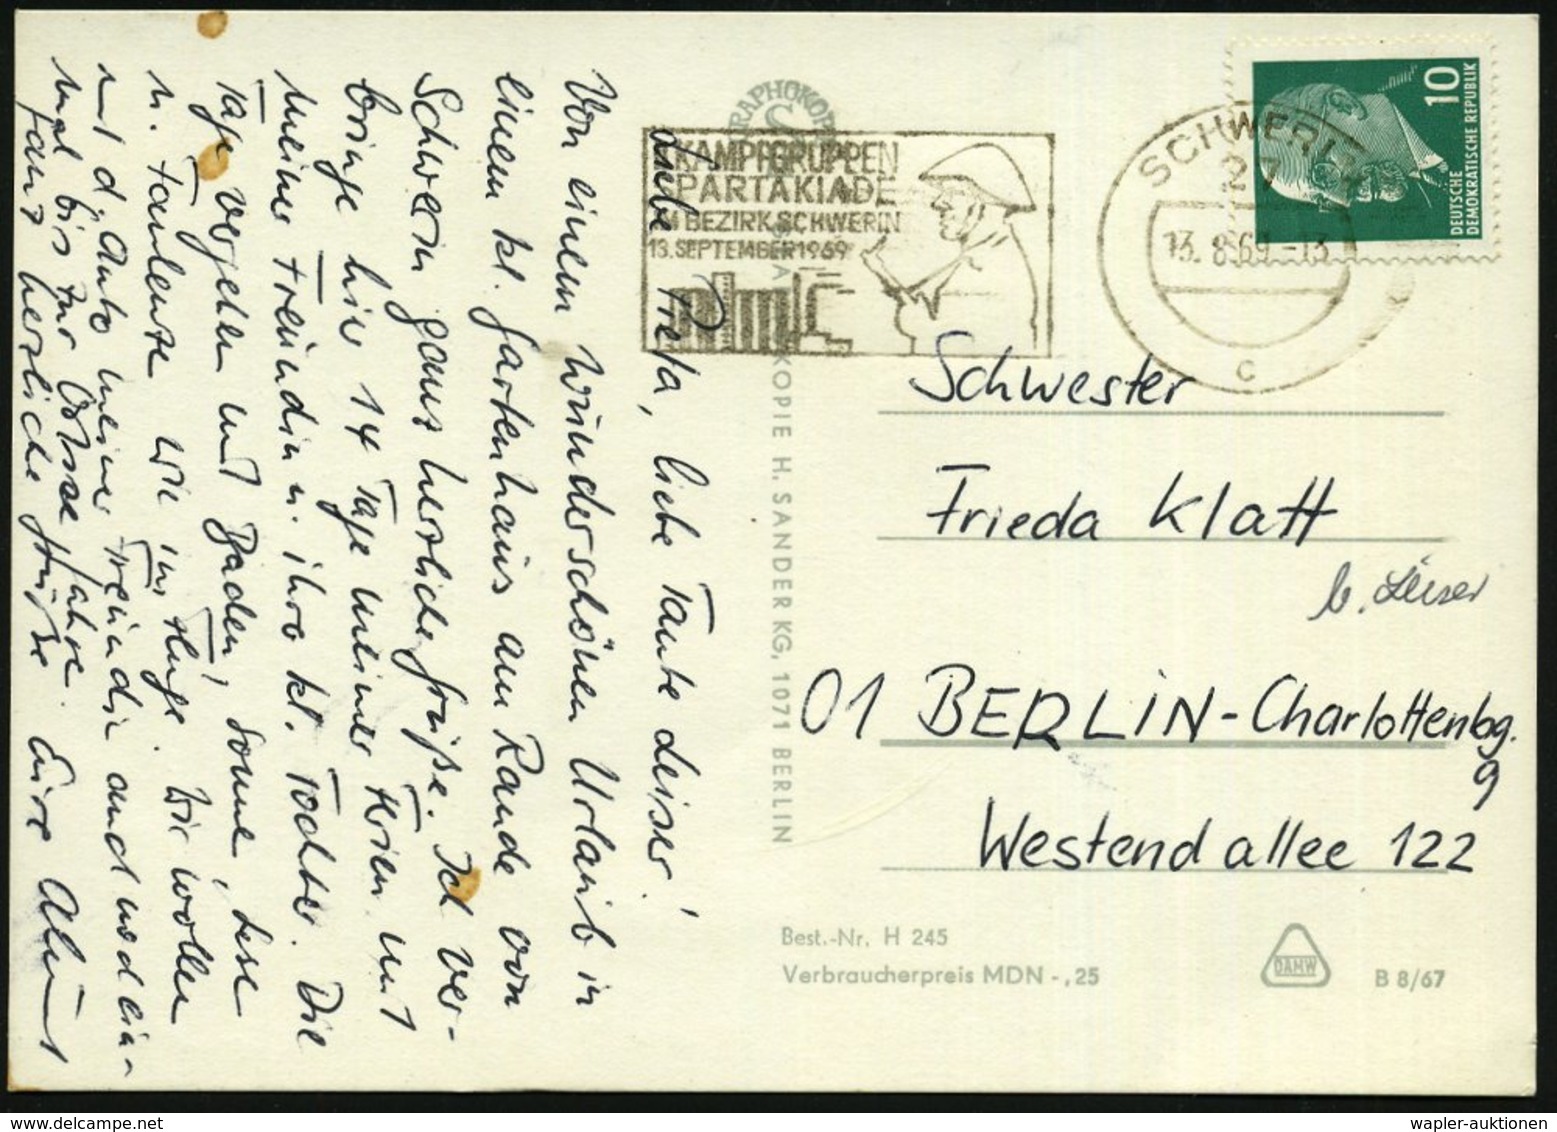 Liebe Preta, liebe Tante Leiser!
Von einem wunderschönen Urlaub in
einem kl. Gartenhaus am Rande von
Schwerin ganz herzliche Grüße. Ich ver-
bringe hier 14 Tage meiner Ferien mit
meiner Freundin u. ihre kl. Tochter. Die
Tage vergehen mit Baden, Sonne, Lese
u. Faulenze wie im Fluge. Wir wollen
mit d. Auto meiner Freundin auch noch ein-
mal bis zur Ostsee fahre.
Ganz herzliche Grüße Eure
GRAPHOKOP
KOPIE H. SANDER KG, 1071 BERLIN
KAMPFGRUPPEN
SPARTAKIADE
IM BEZIRK SCHWERIN
13. SEPTEMBER 1969
SCHWERIN
27
13. 8. 69 -13
c
10
DEUTSCHE
DEMOKRATISCHE REPUBLIK
Schwester
Frieda Klatt
b. Leiser
01 BERLIN-Charlottenbg.
9
Westendallee 122
Best.-Nr. H 245
Verbraucherpreis MDN -,25
DAMW
B 8/67
wapler-auktionen